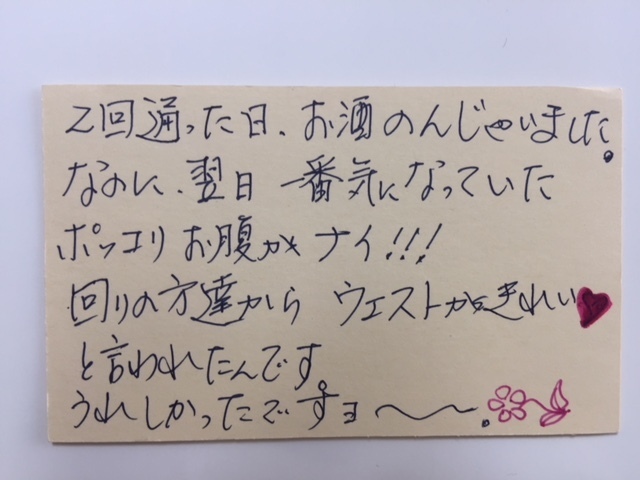 2回通った日、お酒のんじゃいました。
なのに、翌日 一番気になっていた
ポッコリお腹がナイ!!!
回りの方達から ウエストがきれい♥
と言われたんです。
うれしかったですヨ〜〜。